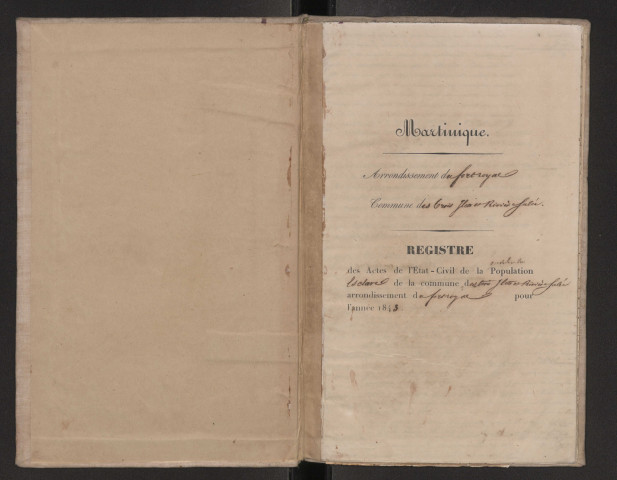 Martinique.
Arrondissement du fortroyal
Commune des trois Ilets et Rivière Salée.
REGISTRE
des Actes de l'Etat-Civil de la Population
Esclave de la commune des trois Ilets et Rivière Salée
arrondissement du fortroyal pour
l'année 1843